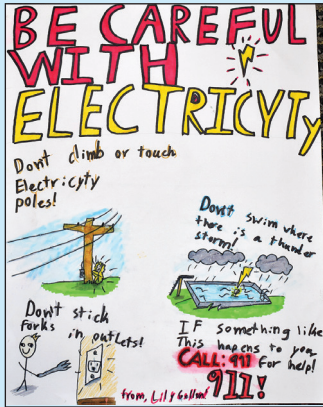 BE CAREFUL
WITH
ELECTRICYTy
Dont climb or touch
Electricyty
poles!
Dont swim where
there is a thunder
storm!
Dont stick
Forks
in outlets!
IF something like
This hapens to you
CALL: 911 For help!
911!
from, Lily